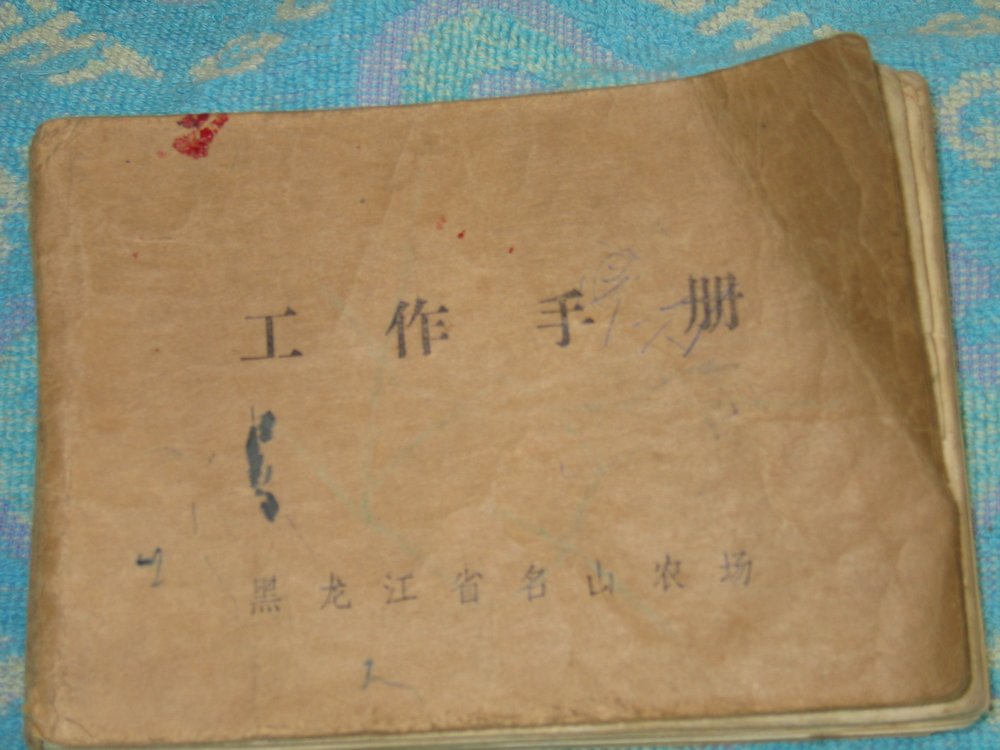 工作手册
黑龙江省名山农场